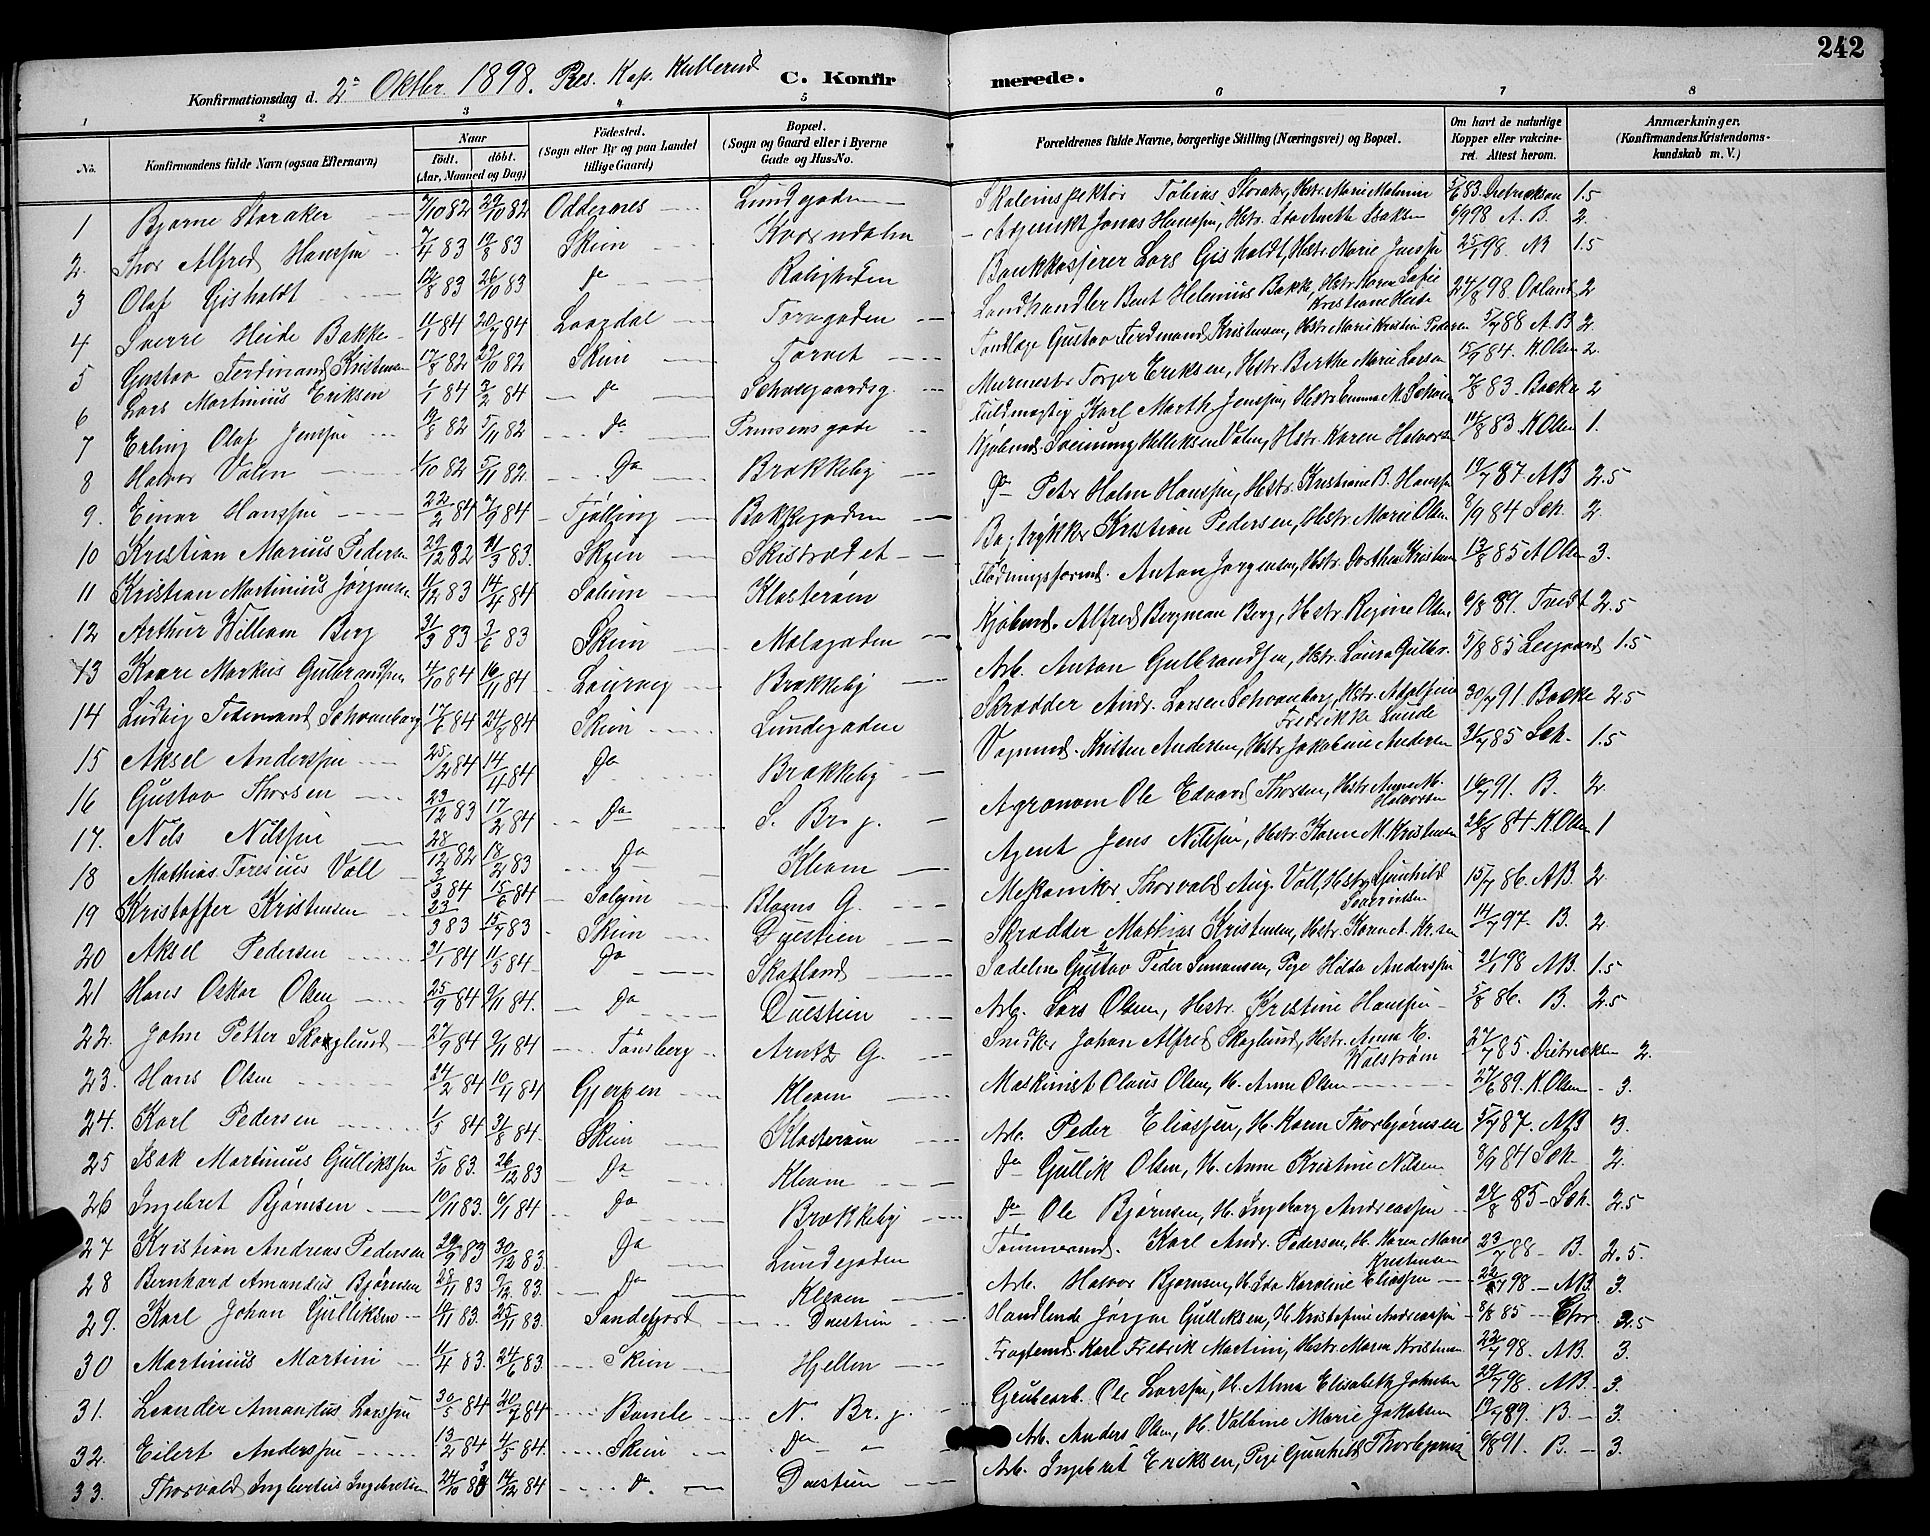 242
Konfirmationsdag d. 2den Oktbr. 1898. Res. Kap. Kullerud C. Konfirmerede.
1 2 3 4 5 6 7 8
No. Konfirmandens fulde Navn (ogsaa Efternavn) Naar født. døbt. (Aar, Maaned og Dag) Fødested. (Sogn eller By og paa Landet tillige Gaard) Bopæl. (Sogn og Gaard eller i Byerne Gade og Hus-No. Forældrenes fulde Navne, borgerlige Stilling (Næringsvei) og Bopæl. Om havt de naturlige Kopper eller vakcineret. Attest herom. Anmærkninger. (Konfirmandens Kristendomskundskab m. V.)
1 Bjarne Storaker 7/10 82 29/10 82 Oddernes Lundegaden Skoleinspektør Tobias Storaker, Hstr. Marie 5/6 83. Diedrichsen 1.5
2. Thor Alfred Hanssen 7/4 83 19/8 83 Skien Kværndalen Adjunkt Jonas Hanssen, Hstr. Anette Isaksen 6/9 98 A. B. 2.
3 Olaf Gisholdt 12/8 83 26/10 83 Do Roligheden Bankkasserer Lars Gisholdt, Hstr. Marie Jenssen 25/1 98. AB 1.5
4 Sverre Heide Bakke 11/1 84 20/7 84 Laardal Torvgaden Landhandler Bent Helenius Bakke, Hstr. Karen Sofie Kristiane Heide 24/8 98. 2
5 Gustav Ferdinand Kristensen 17/8 82 29/10 82 Skien Torvet Tandlæge Gustav Ferdinand Kristensen, Hstr. Marie Kristine Pedersen 5/7 88 A. B 2.
6 Lars Martinius Eriksen 1/1 84 3/2 84 Do Schweegaardsg. Murmestr. Torger Eriksen, Hstr. Berthe Marie Larsen 15/7 84. K. Olsen 2.
7 Erling Olaf Jenssen 12/8 82 5/11 82 Do Prinsensgade Fuldmægtig Karl Marth. Jenssen, Hstr. Emma M. 7/8 83. Baeke 2
8 Halvor Valen 1/10 82 5/11 82 Do Brækkeby Kjøbmd. Sveinung Valen, Hstr. Karen Halvorsen 14/8 83 K. Olsen 1.
9. Einar Hanssen 22/2 84 7/9 84 Tjølling Bakkegaden Do Peter Holm Hanssen, Hstr. Kristiane B. Hanssen 19/7 87 AB 2.5
10 Kristian Marius Pedersen 29/12 82 11/3 83. Skien Skistrædet Bogtrykker Kristian Pedersen, Hstr. Marie Olsen 2/9 84 Sch. 2
11 Kristian Martinius Jørgensen 11/12 83 14/4 84 Solum Klosterøen Flødningsformd. Anton Jørgensen, Hstr. Dorthea Kristensen 13/8 85 A Olsen 3.
12 Arthur William Berg 31/3 83 3/6 83 Skien Malegaden Kjøbmd. Alfred Bergman Berg, Hstr. Regine Olsen 9/8 89. Tvedt 2.5
13 Kaare Markus Gulbrandsen 4/10 84 16/11 84 Laurvig Brækkeby Arb. Anton Gulbrandsen, Hstr. Laura Gulbr. 5/8 85 Leegaard 1.5
14 Ludvig Ferdinand Schvanborg 17/6 84 24/8 84 Skien Lundegaden Skrædder Andr. Larsen Schvanborg, Hstr. Adolfine Fredrikke Lunde 30/7 91. Baekke 2.5
15 Aksel Anderssen 25/2 84 14/4 84 Do Brækkeby Vognmd. Kristen Andersen, Hstr. Jakobine Andersen 31/7 85 Sch. 1.5
16 Gustav Thorsen 23/12 83 17/2 84 Do S. Br.g. Agronom Ole Edvard Thorsen, Hstr. Anne M. Halvorsen 16/7 91. B. 2
17. Nils Nilssen 28/12 82 18/2 83 Do Kleven Agent Jens Nilssen, Hstr. Karen M. Kristensen 26/8 84 K. Olsen 1
18 Mathias Toresius Voll 3/3 84 15/6 84 Solum Bloms G. Mekaniker Thorvald Aug. Voll, Hstr. Gunhild 15/7 86. AB. 2
19 Kristoffer Kristensen 23/3 83 15/7 83 Skien Duestien Skrædder Mathias Kristensen, Hstr. Karen A. Kr.sen 14/7 97. B. 2
20 Aksel Pedersen 31/1 84 11/5 84 Do Skotland Sadelm. Gustav Peder Simonsen, Pige Hilda Anderssen 21/1 98 AB. 1.5
21 Hans Oskar Olsen 25/9 84 9/11 84. Do Duestien Arb. Lars Olsen, Hstr. Kristine Hanssen 5/8 86. B. 2.5
22. John Petter Skoglund 27/9 84 9/11 84 Tønsberg Arntz G. Snedker Johan Alfred Skoglund, Hstr. Anna M. Walstrøm 27/7 85. Diedrichsen 2.
23. Hans Olsen 24/2 84 10/4 84 Gjerpen Kleven Maskinist Olaus Olsen, H. Anne Olsen 27/6 89. K. Olsen 3.
24. Karl Pedersen 1/5 84 31/8 84. Skien Klosterøen Arb. Peder Eliassen, H. Karen Thorbjørnsen 5/7 87. AB 3.
25 Isak Martinius Gullikssen 5/10 83. 26/12 83 Do Kleven Do Gullik Olsen, H. Anne Kristine Nilsen 3/9 84 Sch. 2.
26 Ingebret Bjørnsen 10/11 83. 6/1 84 Do Brækkeby Do Ole Bjørnsen, H. Ingeborg Andreassen 29/8 85 Sch. 2.5
27 Kristian Andreas Pedersen 29/9 83 30/12 83. Do Lundegaden Tømmermd. Karl Andr. Pedersen, H. Karen Marie Kristensen 23/7 88 B. 2.5.
28 Bernhard Amandus Bjørnsen 28/11 83 9/12 83. Do Kleven Arb. Halvor Bjørnsen, H. Ida Karoline Eliassen 22/7 98 AB. 3.
29. Karl Johan Gulliksen 14/11 83. 25/11 83. Sandefjord Duestien Handlende Jørgen Gulliksen, H. Kristofine Andreassen 8/8 85 2.5
30 Martinius Martini 11/4 83. 24/6 83. Skien Hjellen Fragtemd. Karl Fredrik Martini, Hstr. Maren Kristensen 22/7 98. AB. 3.
31. Leander Amandus Larssen 30/5 84 20/7 84. Bamle N. Br.g. Grubearb. Ole Larssen, H. Alma Elisabeth Johnsen 29/7 98. AB. 3.
32. Eilert Anderssen 13/2 84 4/5 84. Skien Do Arb. Anders Olsen, H. Valbine Marie Jakobsen 19/7 89. B. 3
33. Thorvald Ingbertus Ingebretsen 24/10 83 14/12 84 D. Duestien Arb. Ingebret Eriksen, Pige Gunhild Thorbjørns. 6/8 91. B. 3.